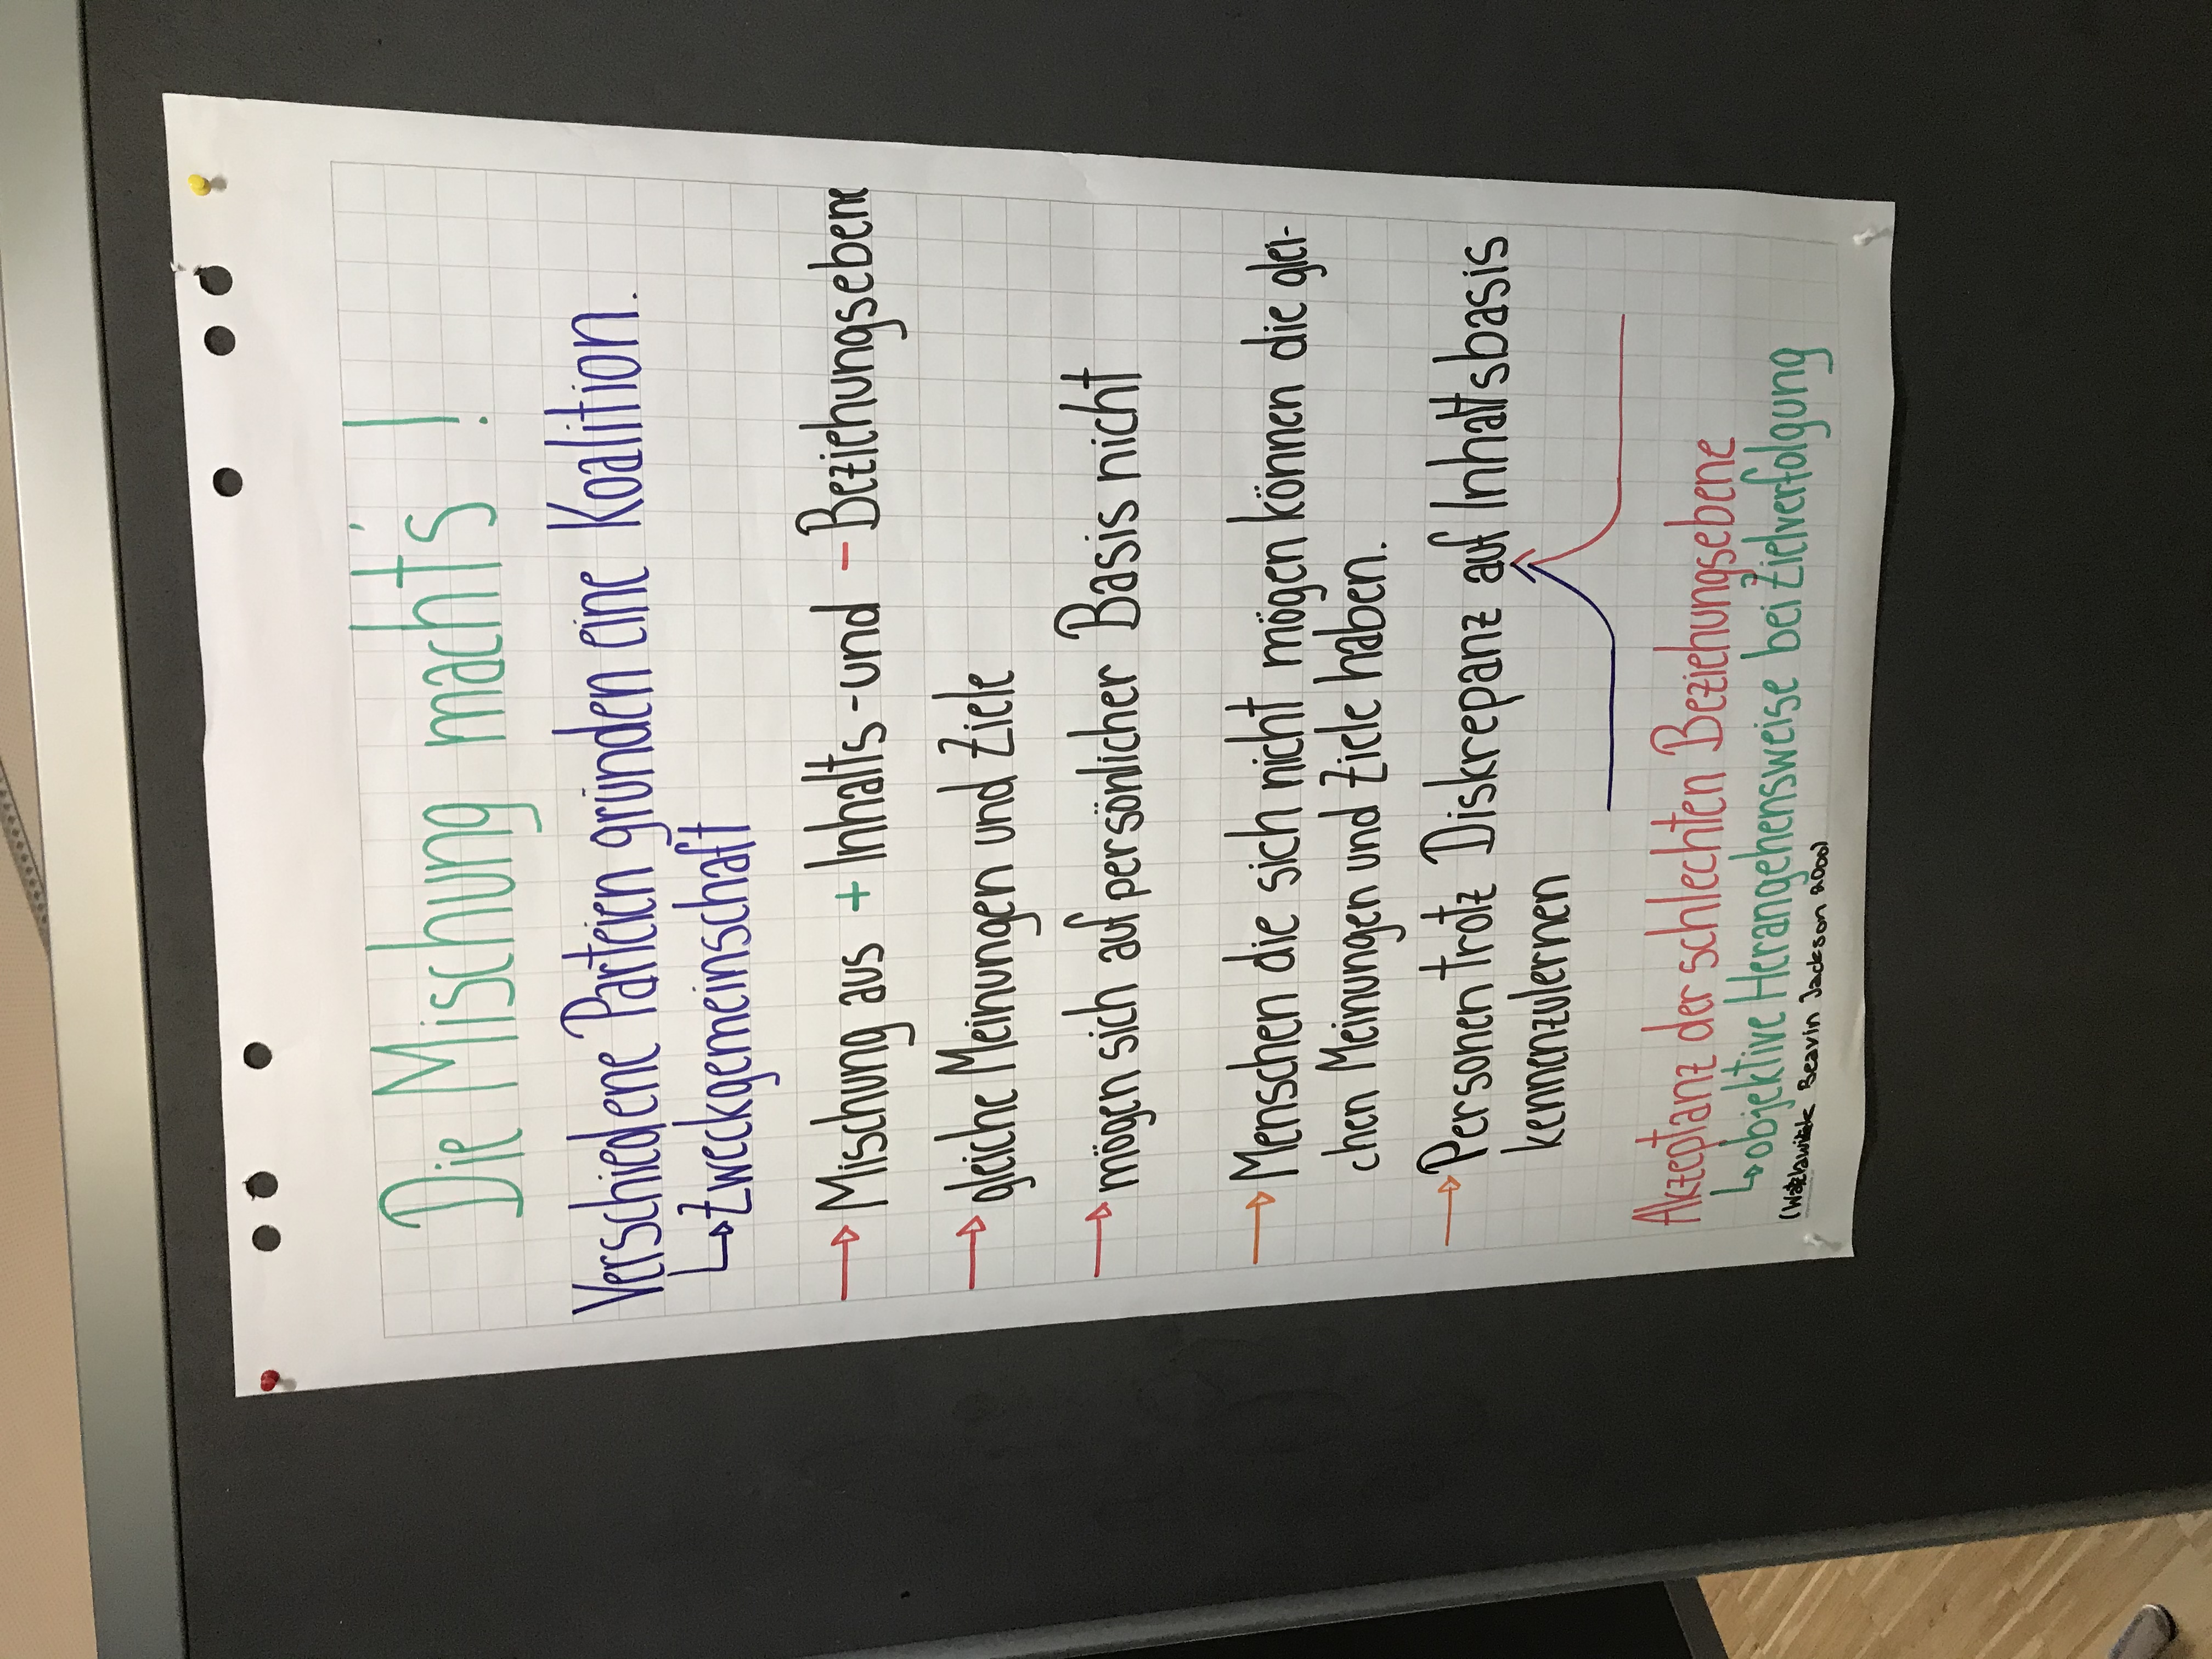 Die Mischung macht's !
Verschiedene Parteien gründen eine Koalition.
↳ Zweckgemeinschaft
→ Mischung aus + Inhalts- und - Beziehungsebene
→ gleiche Meinungen und Ziele
→ mögen sich auf persönlicher Basis nicht
→ Menschen die sich nicht mögen können die glei-
chen Meinungen und Ziele haben.
→ Personen trotz Diskrepanz auf Inhaltsbasis
kennenzulernen
Akzeptanz der schlechten Beziehungsebene
↳ objektive Herangehensweise bei Zielverfolgung
(Watzlawik Beavin Jackson 2000)